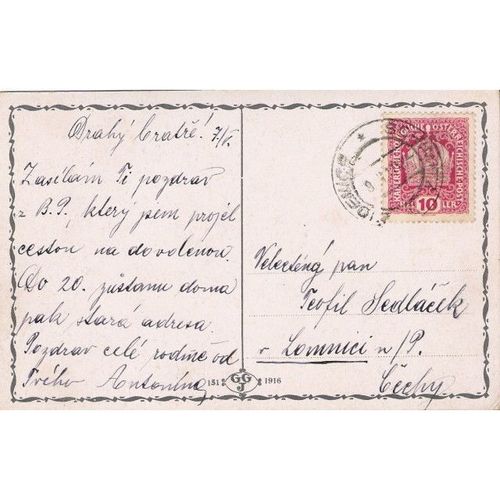 Drahý bratře! 7/V.
Zasílám Ti pozdrav
z B.P., který jsem projel
cestou na dovolenou.
Do 20. zůstanu doma
pak stará adresa.
Pozdrav celé rodině od
Tvého Antonína
Velectěný pan
Teofil Sedláček
v Lomnici n/P.
Čechy
10
151 GGJ 1916